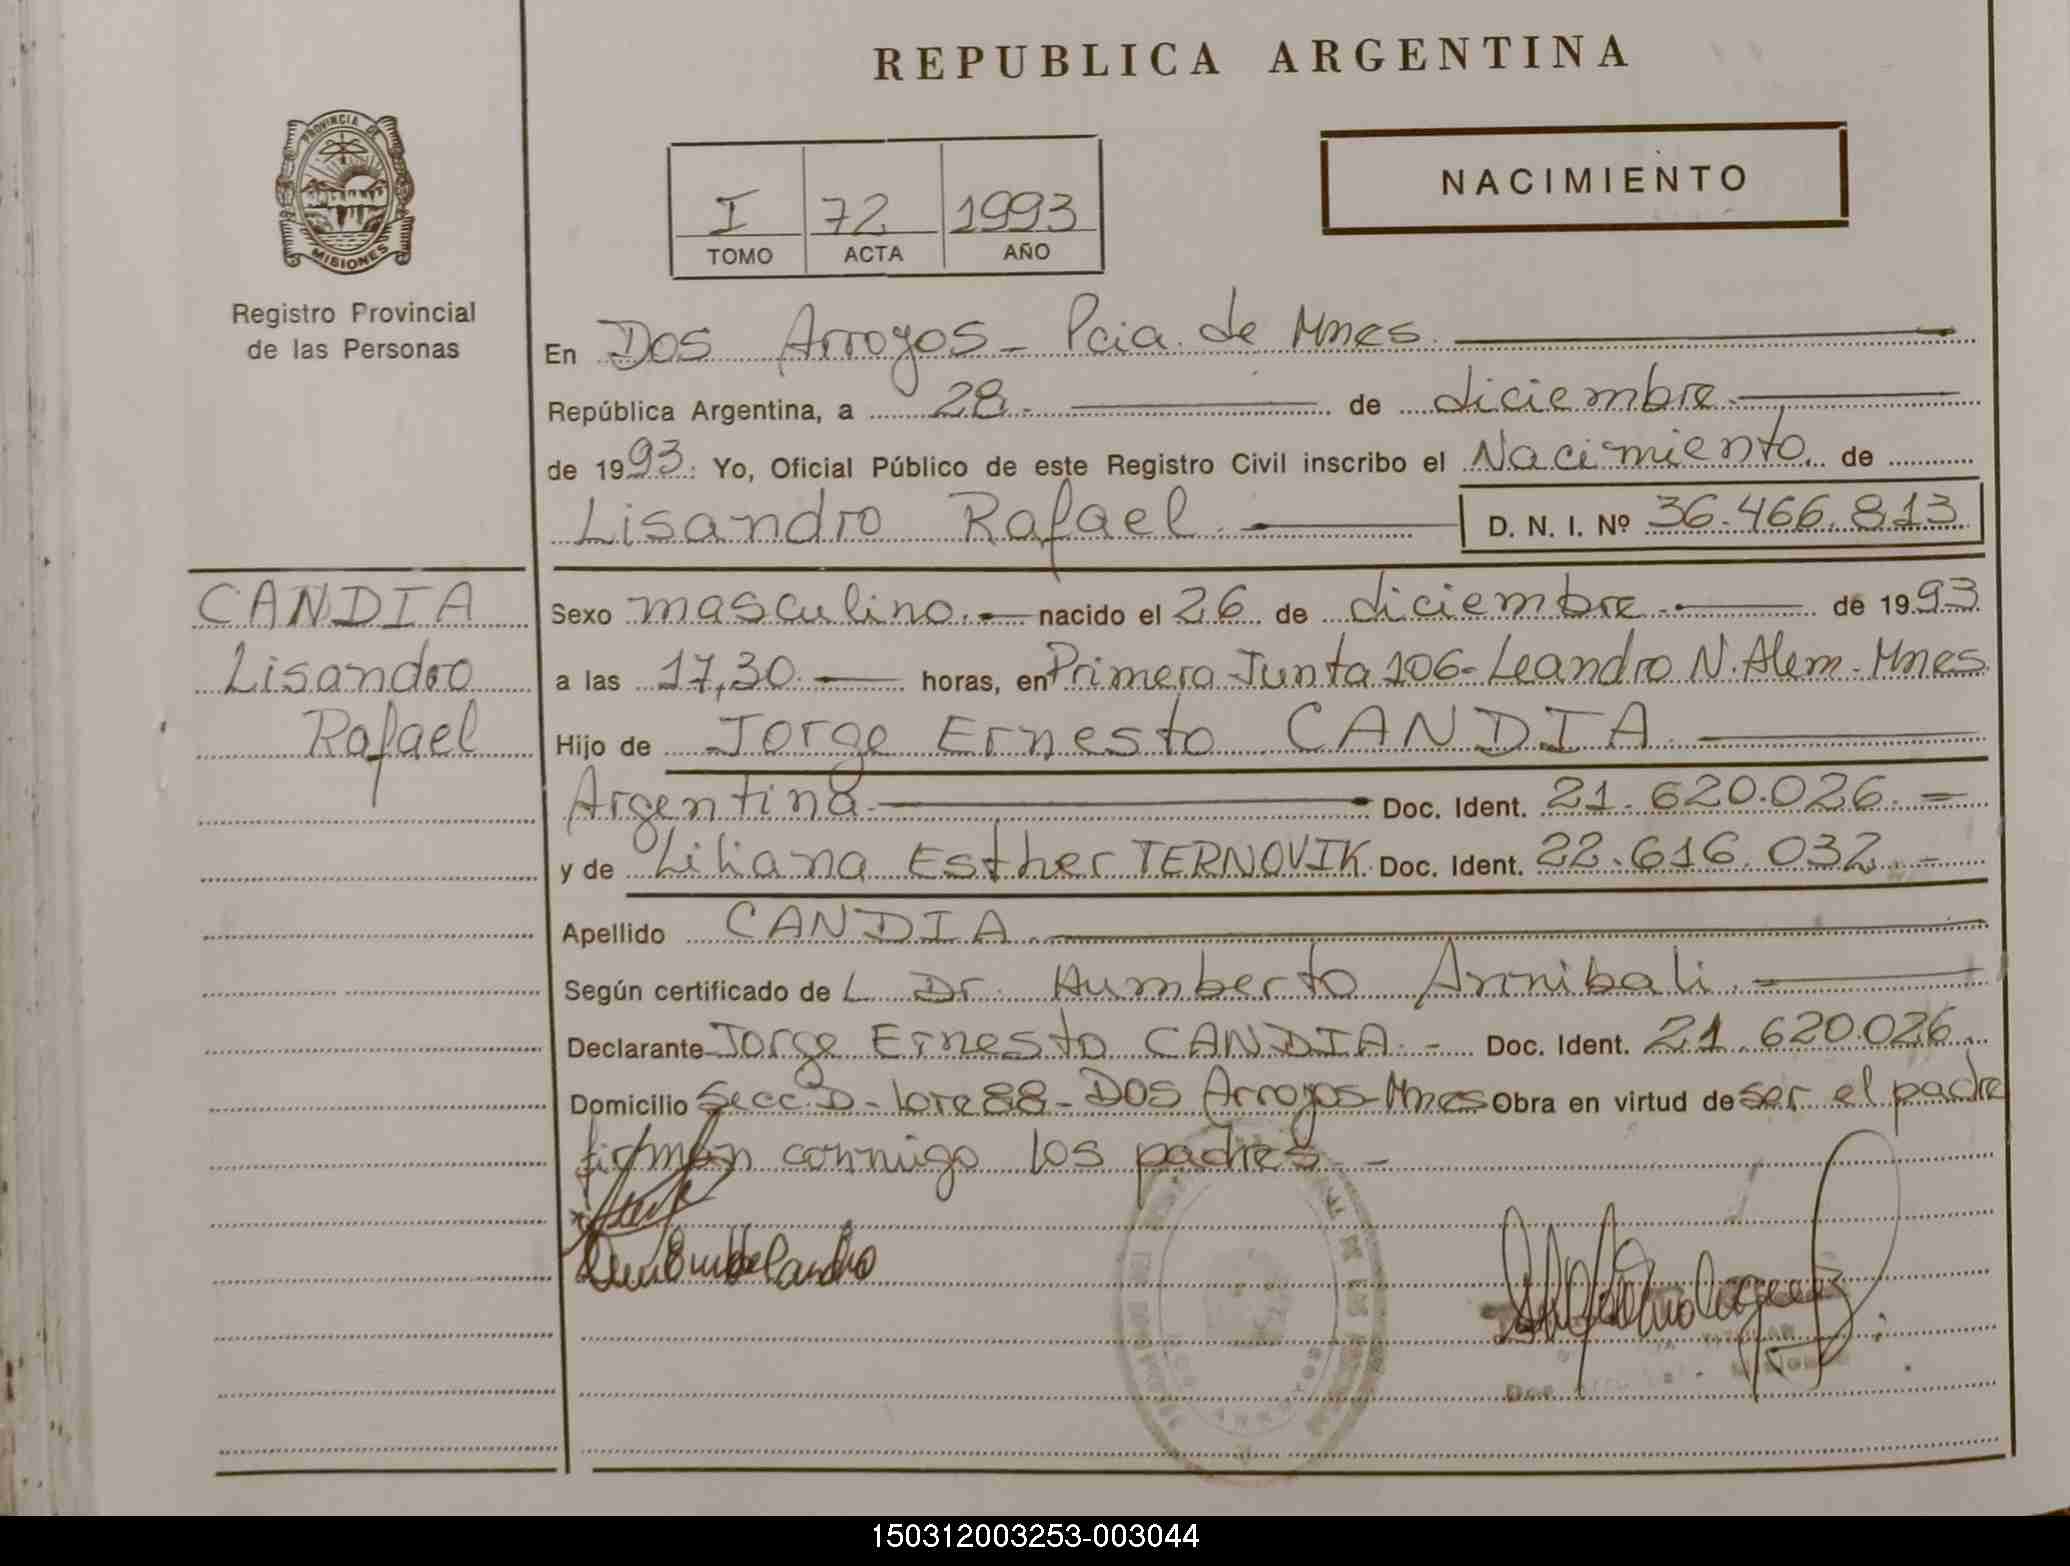 REPUBLICA ARGENTINA
PROVINCIA DE
MISIONES
Registro Provincial
de las Personas
NACIMIENTO
I 72 1993
TOMO ACTA AÑO
En Dos Arroyos - Pcia. de Mnes.
República Argentina, a 28. de diciembre
de 1993. Yo, Oficial Público de este Registro Civil inscribo el Nacimiento de
Lisandro Rafael. D. N. I. Nº 36.466.813
CANDIA
Lisandro
Rafael
Sexo masculino. nacido el 26 de diciembre de 1993
a las 17,30 horas, en Primera Junta 106-Leandro N. Alem-Mnes.
Hijo de Jorge Ernesto CANDIA
Argentina Doc. Ident. 21.620.026. -
y de Liliana Esther TERNOVIK. Doc. Ident. 22.616.032. -
Apellido CANDIA
Según certificado de L Dr. Humberto Annibali.
Declarante Jorge Ernesto CANDIA. - Doc. Ident. 21.620.026.
Domicilio Secc. D - lote 88 - Dos Arroyos-Mnes Obra en virtud de ser el padre
firman conmigo los padres. -
150312003253-003044